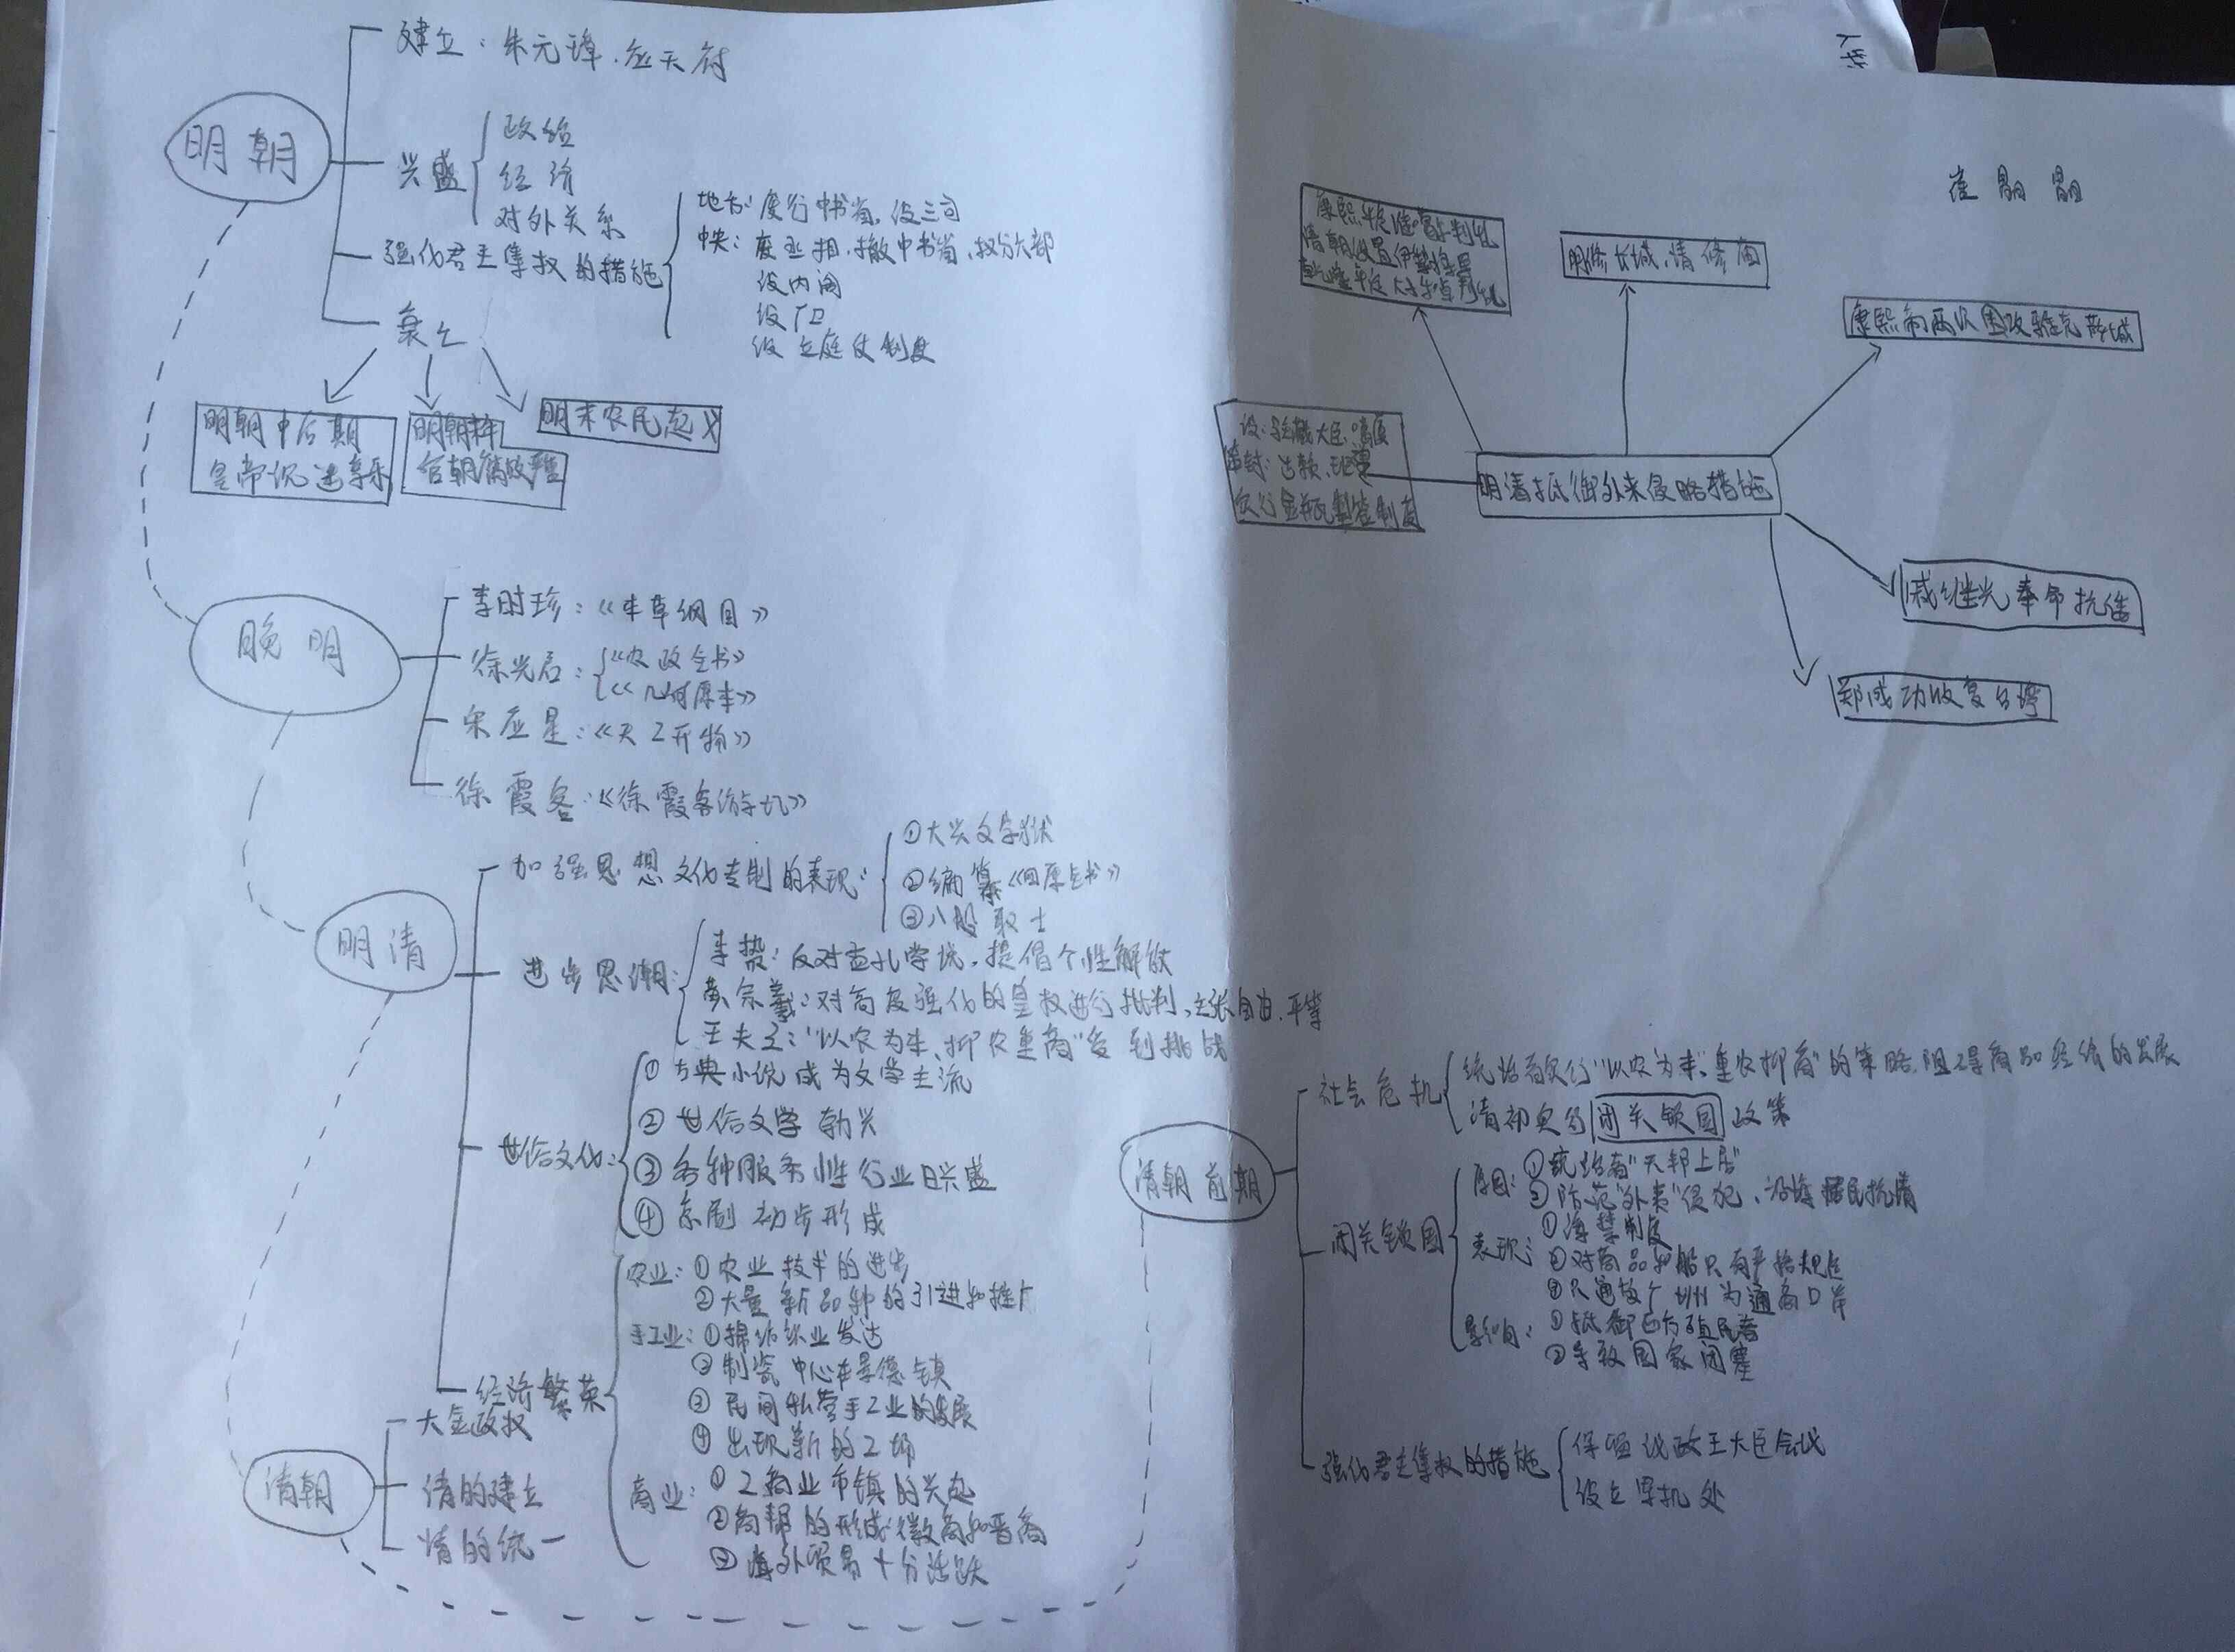 明朝
建立：朱元璋.应天府
兴盛
政治
经济
对外关系
强化君主集权的措施
地方：废行中书省，设三司
中央：废丞相，撤中书省，权分六部
设内阁
设厂卫
设立庭仗制度
衰亡
明朝中后期
皇帝沉迷享乐
明朝末年
官朝腐败严重
明末农民起义
晚明
李时珍：《本草纲目》
徐光启：
《农政全书》
《几何原本》
宋应星：《天工开物》
徐霞客：《徐霞客游记》
明清
加强思想文化专制的表现：
①大兴文字狱
②编纂《四库全书》
③八股取士
进步思潮：
李贽：反对孟孔学说，提倡个性解放
黄宗羲：对高度强化的皇权进行批判，主张自由.平等
王夫之："以农为本、抑农重商"受到挑战
世俗文化：
①古典小说成为文学主流
②世俗文学勃兴
③各种服务性行业日兴盛
④京剧初步形成
经济繁荣
农业：①农业技术的进步
②大量新品种的引进和推广
手工业：①棉纺织业发达
②制瓷中心在景德镇
③民间私营手工业的发展
④出现新的工场
商业：①工商业市镇的兴起
②商帮的形成：徽商和晋商
③海外贸易十分活跃
清朝
大金政权
清的建立
清的统一
崔朤朤
明清抵御外来侵略措施
明修长城，清修庙
康熙帝两次围攻雅克萨城
戚继光奉命抗倭
郑成功收复台湾
设：驻藏大臣
册封：达赖、班禅
实行金瓶掣签制度
清朝前期
社会危机
统治者实行"以农为本"、重农抑商"的策略，阻碍商品经济的发展
清初实行闭关锁国政策
闭关锁国
原因：①统治者"天邦上居"
②防范"外类"侵犯、沿海居民抗清
表现：①海禁制度
②对商品和船只有严格规定
影响：①抵御西方殖民者
②导致国家闭塞
强化君主集权的措施
保留议政王大臣会议
设立军机处